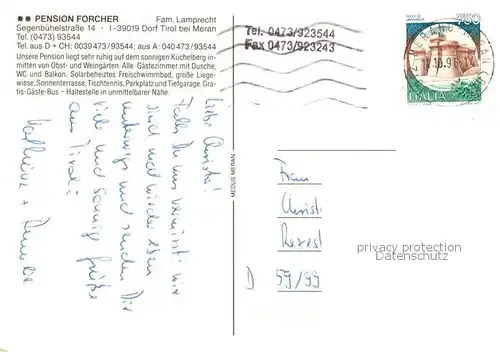 ** PENSION FORCHER Fam. Lamprecht
Segenbühelstraße 14 · I-39019 Dorf Tirol bei Meran
Tel. (0473) 93544
Tel. aus D + CH: 0039 473/93544; aus A: 040 473/93544
Unsere Pension liegt sehr ruhig auf dem sonnigen Küchelberg in-
mitten von Obst- und Weingärten. Alle Gästezimmer mit Dusche,
WC und Balkon. Solarbeheiztes Freischwimmbad, große Liege-
wiese, Sonnenterrasse, Tischtennis, Parkplatz und Tiefgarage. Gra-
tis-Gäste-Bus - Haltestelle in unmittelbarer Nähe.
Tel. 0473/923544
Fax 0473/923243
750
ITALIA
MERANO
Liebe Christa!
Falls Du uns vermisst: wir
sind mal wieder
unterwegs und senden Dir
viele und sonnige Grüße
aus Tirol:
MEDUS MERAN
Frau
privacy protection
Datenschutz
D 59/99